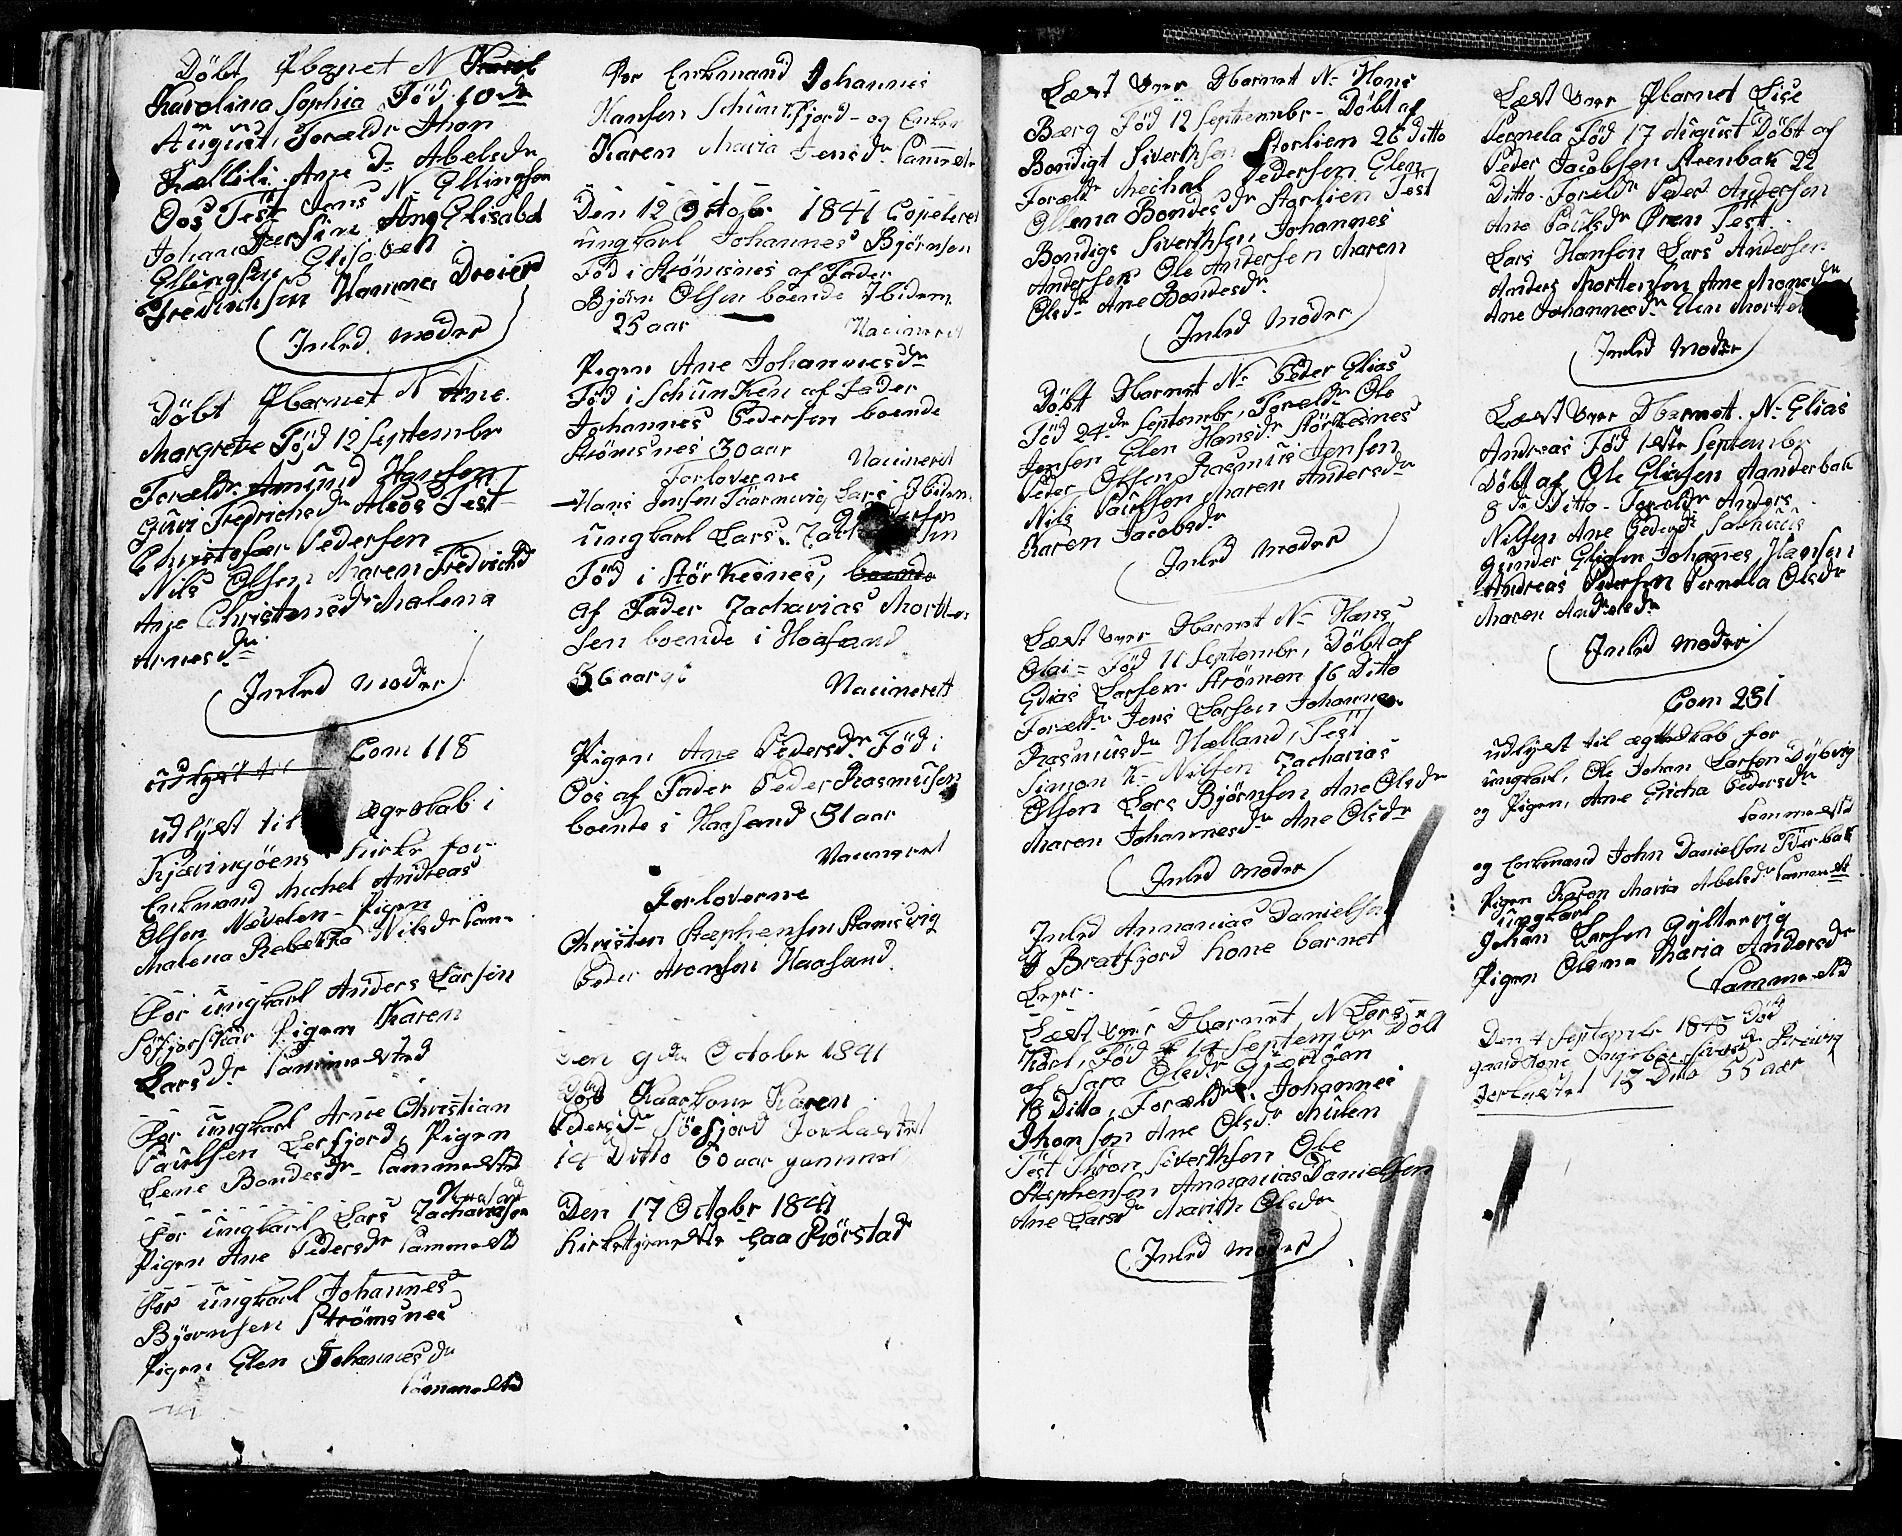 Döbt Pbarnet N Karel
Karolina Sophia Föd 10de
August, Foræld Jhon
Kallili. Ane J. Abelsdr
Oos Test Jens N. Ellingsen
Johan Persine Ane Elisabet
Ellingsen Elisabet
Fredrichsen Hanna Dreier
Inled moder
Döbt Pbarnet N Ane
Margrete Föd 12 Septembr
Foræld Amund Hansen
Guri Fredrichsdr Alsos Test
Christofær Pedersen
Nils Olsen Maren Fredrichsd
Ane Christensdr Malena
Arnesdr
Inled moder
Com 118
udlyst til
udlyst til ægteskab i
Kjæringöens kirke for
Enkmand Michel Andreas
Olsen Nævelen - Pigen
Malena Rebekka Nilsdr Sam
For ungkarl Anders Larsen
Pigen Karen
Larsdr Sammested
For ungkarl Arne Christian
Paulsen Lerfjord, Pigen
Lene Bondesdr Sammested
Haasand
For ungkarl Lars Zachariasen
Pigen Ane Pedersdr Sammested
For ungkarl Johannes
Björnsen Strömsnes
Pigen Elen Johannesdr
Sammested
For Enkmand Johannes
Hansen Schunkfjord - og Enken
Karen Maria Jensdr Sammest
Den 12 October 1841 Copuleret
ungkarl Johannes Björnsen
Föd i Strömsnes af Fader
Björn Olsen boende Ibidem
25 aar Vaccineret
Pigen Ane Johannesdr
Föd i Schunken af Fader
Johannes Pedersen boende
Strömsnes 30 aar
Vaccineret
Forloverne
Hans Jensen Lars Ibidem
ungkarl Lars Zach
Föd i Störkesnes, boende
af Fader Zacharias Morten
sen boende i Haasand
36 aar
Vaccineret
Pigen Ane Pedersdr Föd i
Oos af Fader Peder Rasmusen
boende i Haasand 31 aar
Vaccineret
Forloverne
Christen Stephensen
Peder Aronsen Haasand
Den 9de Octobr 1841
Död Kaarkone Karen
Pedersdr Söefjord Jorfæstet
14 Ditto 60 aar gammel
Den 17 Octobr 1841
kirketjeneste paa Rörstad
Læst over Dbarnet N. Hans
Bærg Föd 12 Septembr - Döbt af
Bondigt Siverthsen Storlien 26 Ditto
Foræld Meichal Pedersen Elen
Ollena Bondesdr Storlien Test
Bondigs Siverthsen Johannes
Andersen Ole Andersen Maren
Olsdr Ane Bondesdr
Inled moder
Döbt Dbarnet N. Peder Elias
Föd 24de Septembr, Forældr Ole
Jensen Elen Hansdr Störkesnes
Peder Olsen Rasmus Jensen
Nils Paulsen Maren Andersdr
Karen Jacobsdr
Inled moder
Læst over Dbarnet N. Hans
Olai = Föd 11 Septembr, Döbt af
Elias Larsen Strömen 16 Ditto
Forældr Jens Larsen Johanna
Rasmusdr Hælland, Test
Simon K. Nilsen Zacharias
Olsen Lars Björnsen Ane Olsdr
Maren Johannesdr Ane Olsdr
Inled moder
Inled Annanias Danielsen
Bratfjord kone barnet
Læst over Dbarnet N Lars
Karl, Föd 14 September Döbt
af Sara Olsdr Gjærlöen
18 Ditto, Forældr, Johannes
Jhonsen Ane Olsdr Mulen
Test Thron Siverthsen Ole
Stephensen Annanias Danielsen
Ane Larsdr Marith Olsdr
Inled moder
Læst over Pbarnet Lise
Pernela Föd 17 August Döbt af
Peder Jacobsen Steenbak 22
Ditto. Forældr Peder Andersen
Ane Paulsdr Ören Test.
Lars Hansen Lars Andersen
Anders Mortensen Ane Monsdr
Ane Johannesdr Elen Morten
Inled Moder
Læst over Dbarnet. N. Elias
Andreas Föd 1ste Septembr
Döbt af Ole Eliasen Aanderbak
8de Ditto - Forældr Anders
Nilsen Ane Pedersdr
Gunder Eliasen Johannes Hansen
Andreas Pedersen Pernella Olsdr
Maren Andersdr
Inled moder
Com 231
udlyst til ægteskab for
ungkarl, Ole Johan Larsen Dybvig
og Pigen, Ane Gricha Pedersdr
Sammested
og Enkmand John Danielsen
Pigen Karen Maria Abelsdr Sammest
ungkarl
Johan Larsen Gyltervig
Pigen Olema Maria Andersdr
Sammested
Den 4 Septembr 1845 Död
gaardkone Ingebor Sivert Breivig
Jorfæstet 13 Ditto 55 aar